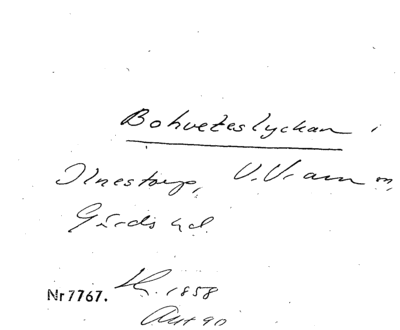 Bohveteslyckan i
Ilnestorp, V. Vram sn,
Gärds hd.
Nr 7767. 1858